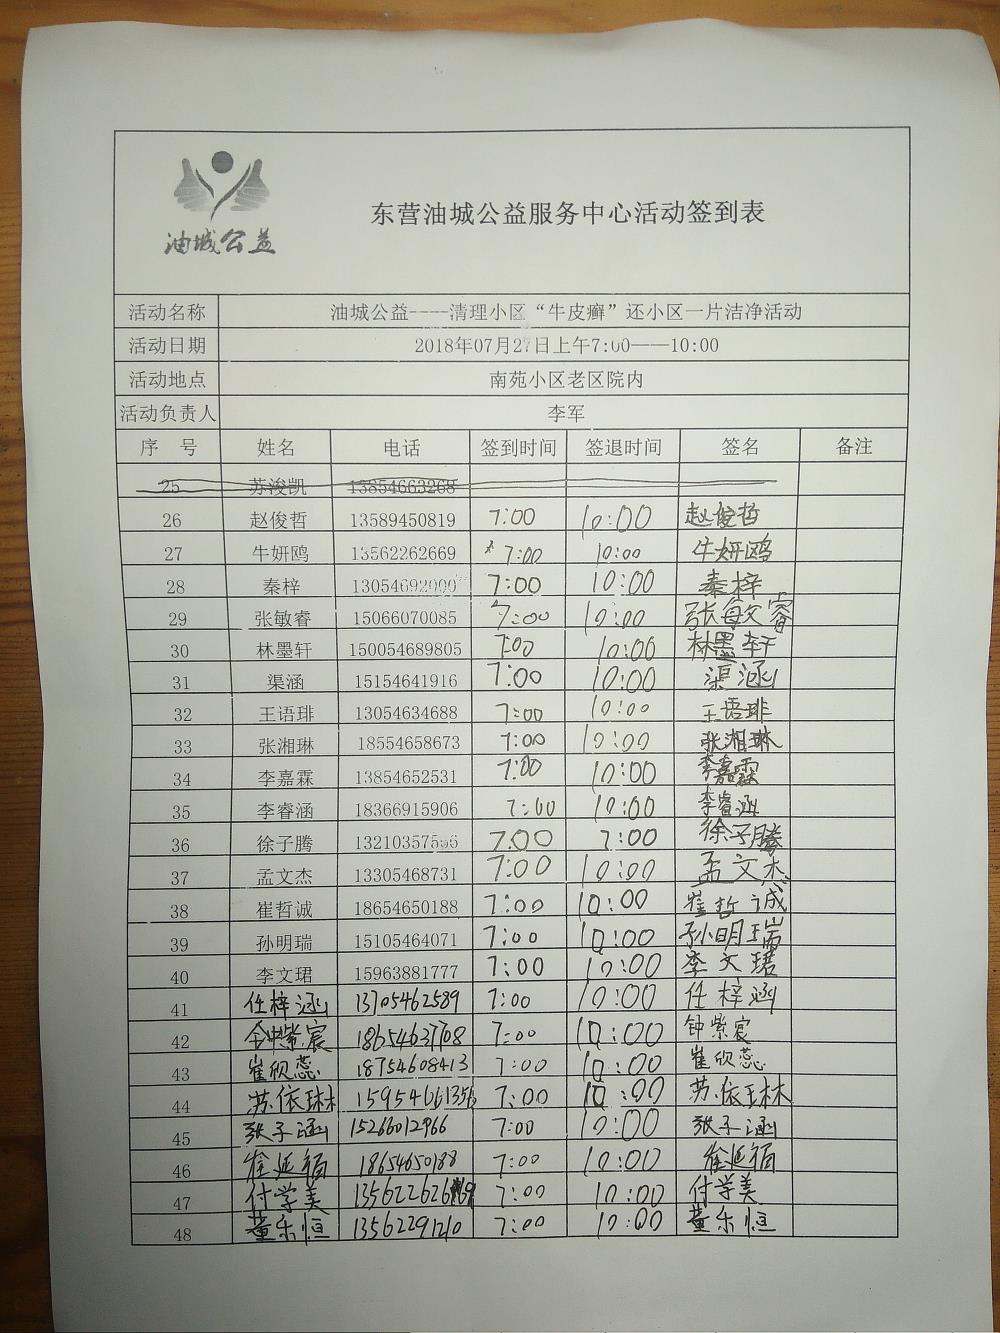 油城公益
东营油城公益服务中心活动签到表
活动名称 油城公益----清理小区“牛皮癣”还小区一片洁净活动
活动日期 2018年07月27日上午7:00——10:00
活动地点 南苑小区老区院内
活动负责人 李军
序 号 姓名 电话 签到时间 签退时间 签名 备注
25 苏浚凯 13854663268
26 赵俊哲 13589450819 7:00 10:00 赵俊哲
27 牛妍鸥 13562262669 7:00 10:00 牛妍鸥
28 秦梓 13054692000 7:00 10:00 秦梓
29 张敏睿 15066070085 7:00 10:00 张敏睿
30 林墨轩 150054689805 7:00 10:00 林墨轩
31 渠涵 15154641916 7:00 10:00 渠涵
32 王语琲 13054634688 7:00 10:00 王语琲
33 张湘琳 18554658673 7:00 10:00 张湘琳
34 李嘉霖 13854652531 7:00 10:00 李嘉霖
35 李睿涵 18366915906 7:00 10:00 李睿涵
36 徐子腾 13210357566 7:00 7:00 徐子腾
37 孟文杰 13305468731 7:00 10:00 孟文杰
38 崔哲诚 18654650188 7:00 10:00 崔哲诚
39 孙明瑞 15105464071 7:00 10:00 孙明瑞
40 李文珺 15963881777 7:00 10:00 李文珺
41 任梓涵 13705462589 7:00 10:00 任梓涵
42 钟紫宸 18654637708 7:00 10:00 钟紫宸
43 崔欣蕊 18754608413 7:00 10:00 崔欣蕊
44 苏依琳 15954661356 7:00 10:00 苏依琳
45 张子涵 15266012966 7:00 10:00 张子涵
46 崔延福 18654650188 7:00 10:00 崔延福
47 付学美 7:00 10:00 付学美
48 董乐恒 13562291210 7:00 10:00 董乐恒